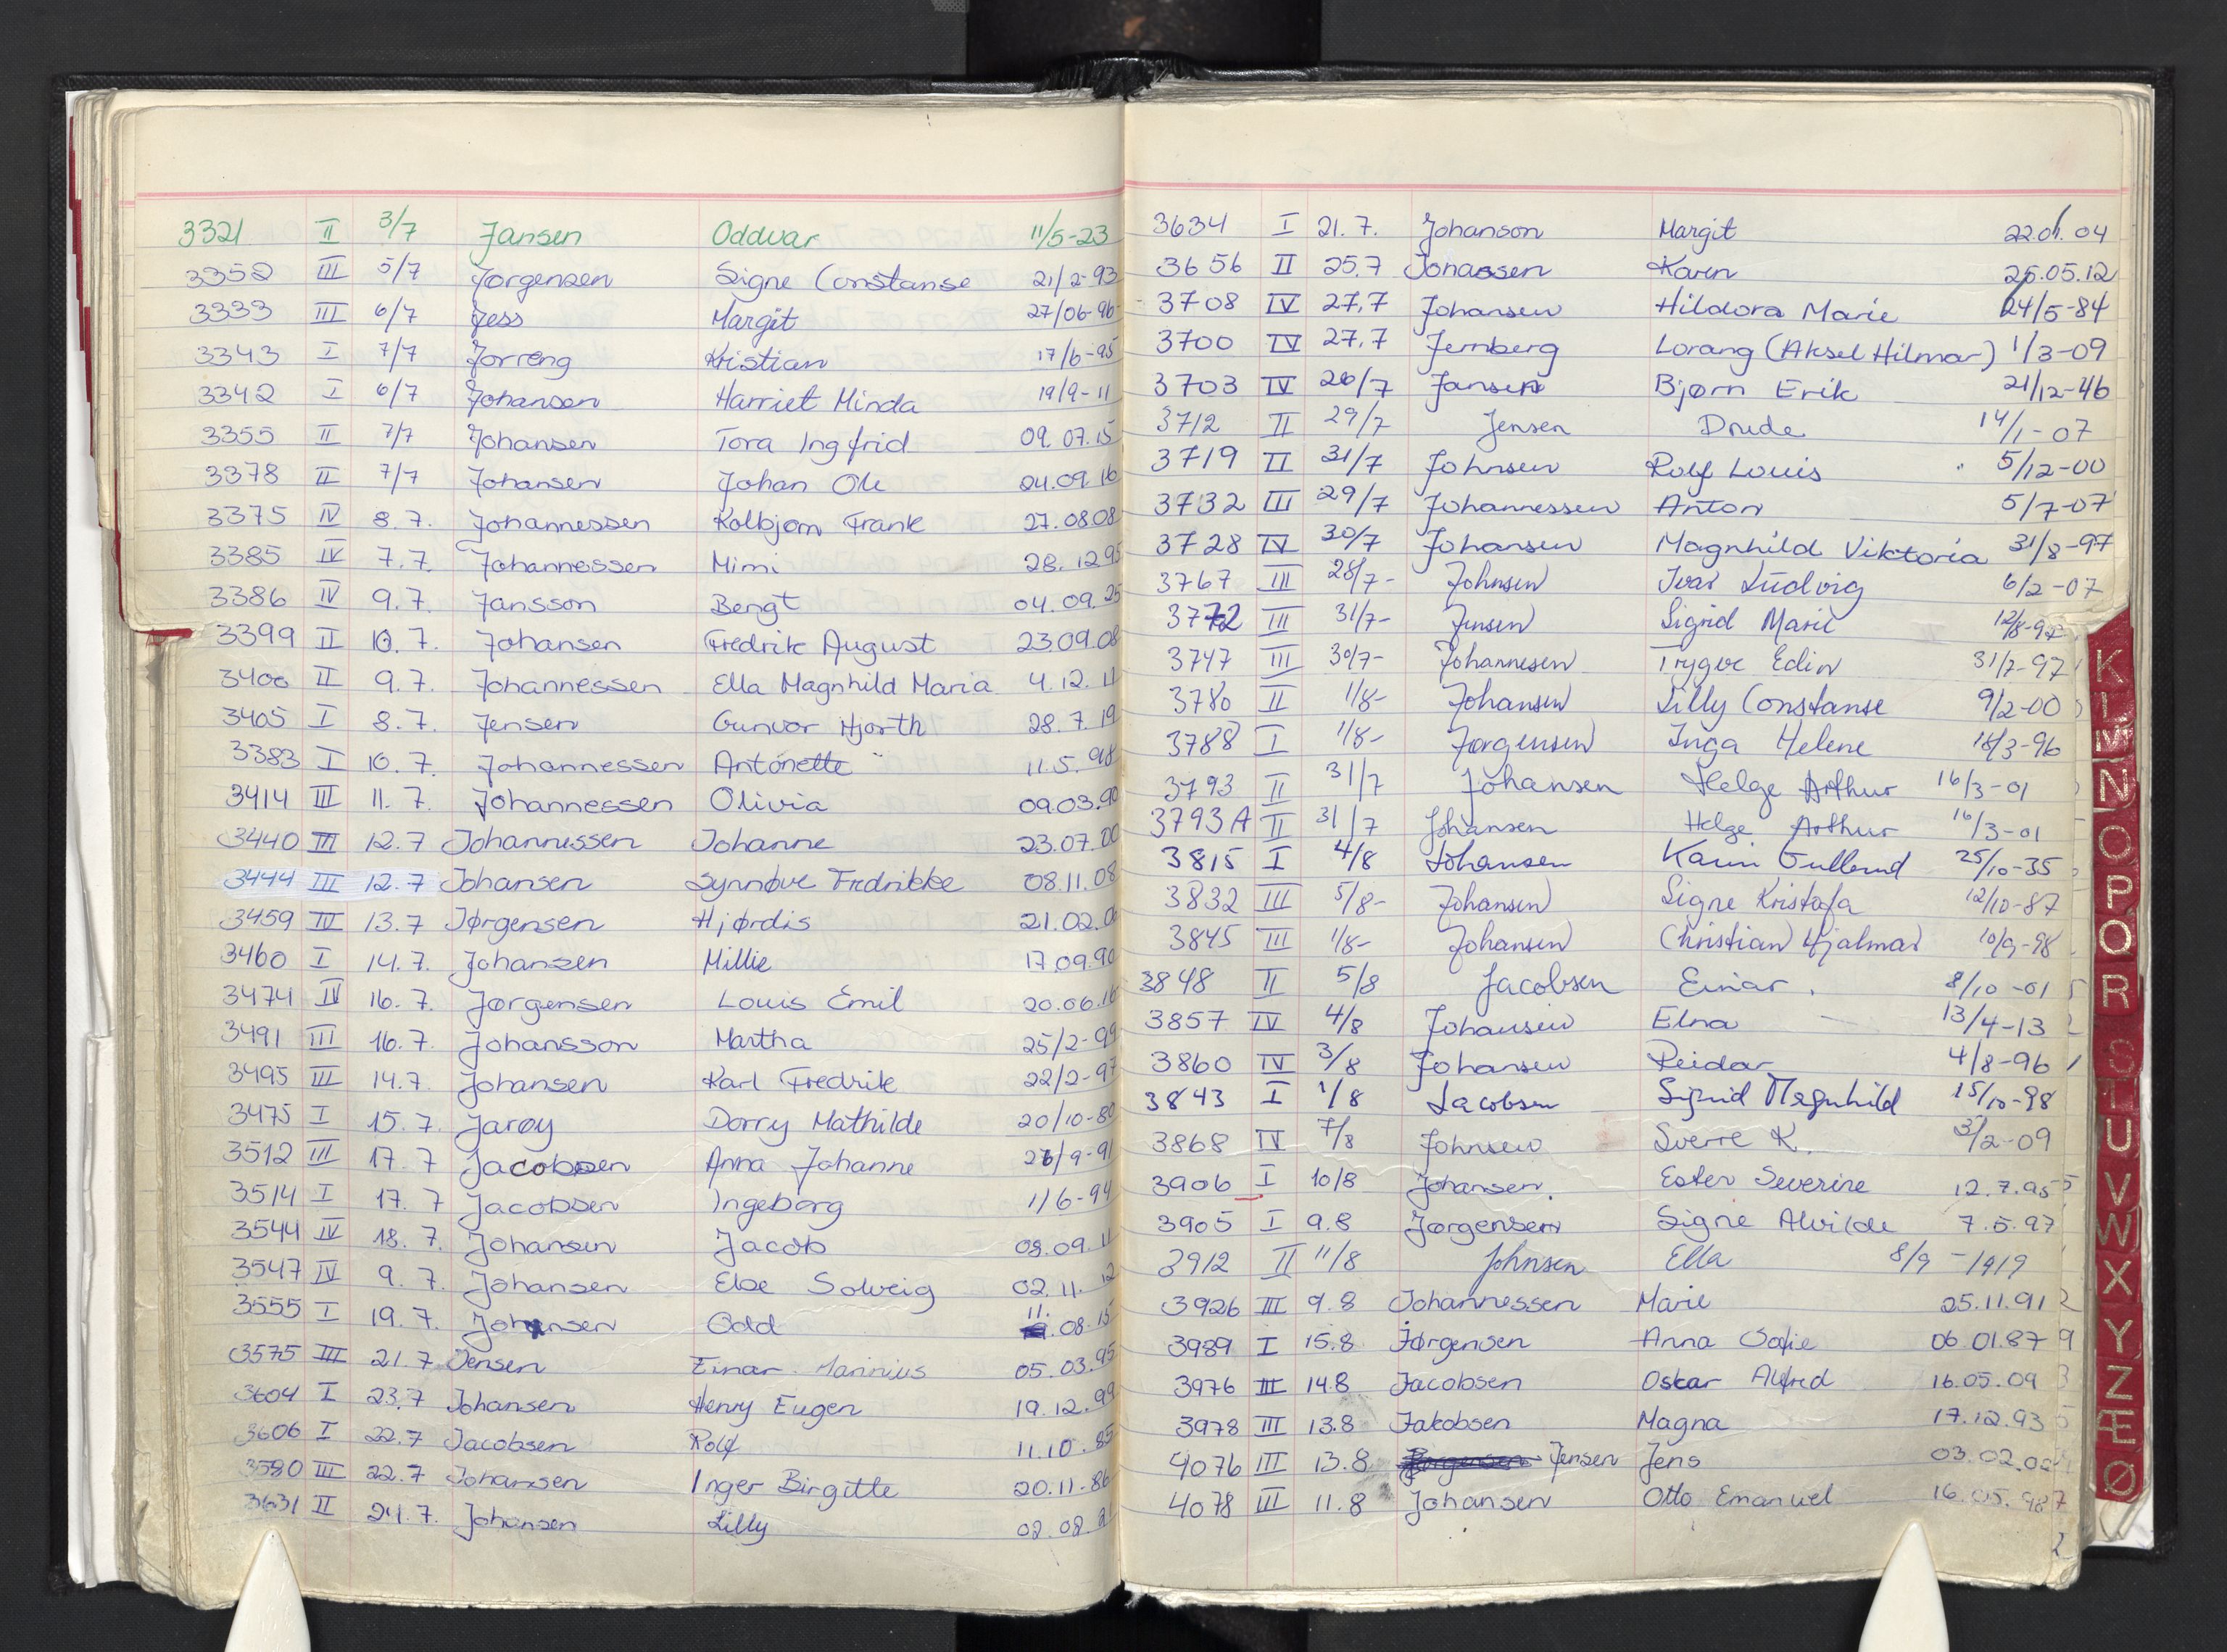 3321 II 3/7 Jansen Oddvar 11/5-23
3352 III 5/7 Jørgensen Signe Constanse 21/2-93
3333 III 6/7 Jess Margit 27/06-96
3343 I 7/7 Jorreng Kristian 17/6-95
3342 I 6/7 Johansen Harriet Minda 19/9-11
3355 II 7/7 Johansen Tora Ingfrid 09.07.15
3378 II 7/7 Johansen Johan Ole 24.09.16
3375 IV 8.7. Johannessen Kolbjørn Frank 27.08.08
3385 IV 7.7. Johannessen Mimi 28.12.95
3386 IV 9.7. Jansson Bengt 04.09.25
3399 II 10.7. Johansen Fredrik August 23.09.08
3400 II 9.7. Johannessen Ella Magnhild Maria 4.12.11
3405 I 8.7. Jensen Gunvor Hjorth 28.7.19
3383 I 10.7. Johannessen Antonette 11.5.98
3414 III 11.7. Johannessen Olivia 09.03.90
3440 III 12.7 Johannessen Johanne 23.07.00
3444 III 12.7 Johansen Synnøve Fredrikke 08.11.08
3459 III 13.7 Jørgensen Hjørdis 21.02.
3460 I 14.7. Johansen Millie 17.09.90
3474 IV 16.7. Jørgensen Louis Emil 20.06.16
3491 III 16.7. Johansson Martha 25/2-99
3495 III 14.7. Johansen Karl Fredrik 22/2-97
3475 I 15.7. Jarøy Dorry Mathilde 20/10-80
3512 III 17.7 Jacobsen Anna Johanne 26/9-91
3514 I 17.7 Jacobsen Ingeborg 1/6-94
3544 IV 18.7. Johansen Jacob 09.09.11
3547 IV 9.7. Johansen Else Solveig 02.11.12
3555 I 19.7. Johansen Odd 11.08.15
3575 III 21.7 Jensen Einar Marinius 05.03.95
3604 I 23.7 Johansen Henry Eugen 19.12.99
3606 I 22.7 Jacobsen Rolf 11.10.85
3580 III 22.7 Johansen Inger Birgitte 20.11.86
3631 II 24.7. Johansen Lilly 02.08.21
3634 I 21.7. Johanson Margit 22.01.04
3656 II 25.7 Jonassen Karen 25.05.12
3708 IV 27.7 Johansen Hildora Marie 24/5-84
3700 IV 27.7 Jernberg Lorang (Aksel Hilmar) 1/3-09
3703 IV 26/7 Jansen Bjørn Erik 21/12-46
3712 II 29/7 Jensen Drude 14/1-07
3719 II 31/7 Johnsen Rolf Louis 5/12-00
3732 III 29/7 Johannessen Anton 5/7-07
3728 IV 30/7 Johansen Magnhild Viktoria 31/8-97
3767 III 28/7- Johnsen Ivar Ludvig 6/2-07
3772 III 31/7- Jensen Sigrid Marie 12/8-92
3747 III 30/7- Johannesen Trygve Edin 31/7-97
3780 II 1/8- Johansen Lilly Constanse 9/2-00
3788 I 1/8- Jørgensen Inga Helene 18/3-96
3793 II 31/7 Johansen Helge Arthur 16/3-01
3793A II 31/7 Johansen Helge Arthur 16/3-01
3815 I 4/8 Johansen Karin Gullerud 25/10-35
3832 III 5/8- Johansen Signe Kristofa 12/10-87
3845 III 1/8- Johansen Christian Hjalmar 10/9-98
3848 II 5/8 Jacobsen Einar. 8/10-01
3857 IV 4/8 Johansen Elna 13/4-13
3860 IV 3/8 Johansen Reidar 4/8-96
3843 I 1/8 Jacobsen Sigrid Magnhild 15/10-98
3868 IV 7/8 Johnsen Sverre K. 3/2-09
3906 I 10/8 Johansen. Ester Severine 12.7.95
3905 I 9.8 Jørgensen Signe Alvilde 7.5.97
3912 II 11/8 Johnsen Ella 8/9-1919
3926 III 9.8 Johannessen Marie 25.11.91
3989 I 15.8 Jørgensen Anna Sofie 06.01.87
3976 III 14.8 Jacobsen Oskar Alfred 16.05.09
3978 III 13.8 Jakobsen Magna 17.12.93
4076 III 13.8 Jørgensen Jensen Jens 03.02.02
4078 III 11.8 Johansen Otto Emanuel 16.05.98
K
L
M
N
O
P
Q
R
S
T
U
V
W
X
Y
Z
Æ
Ø